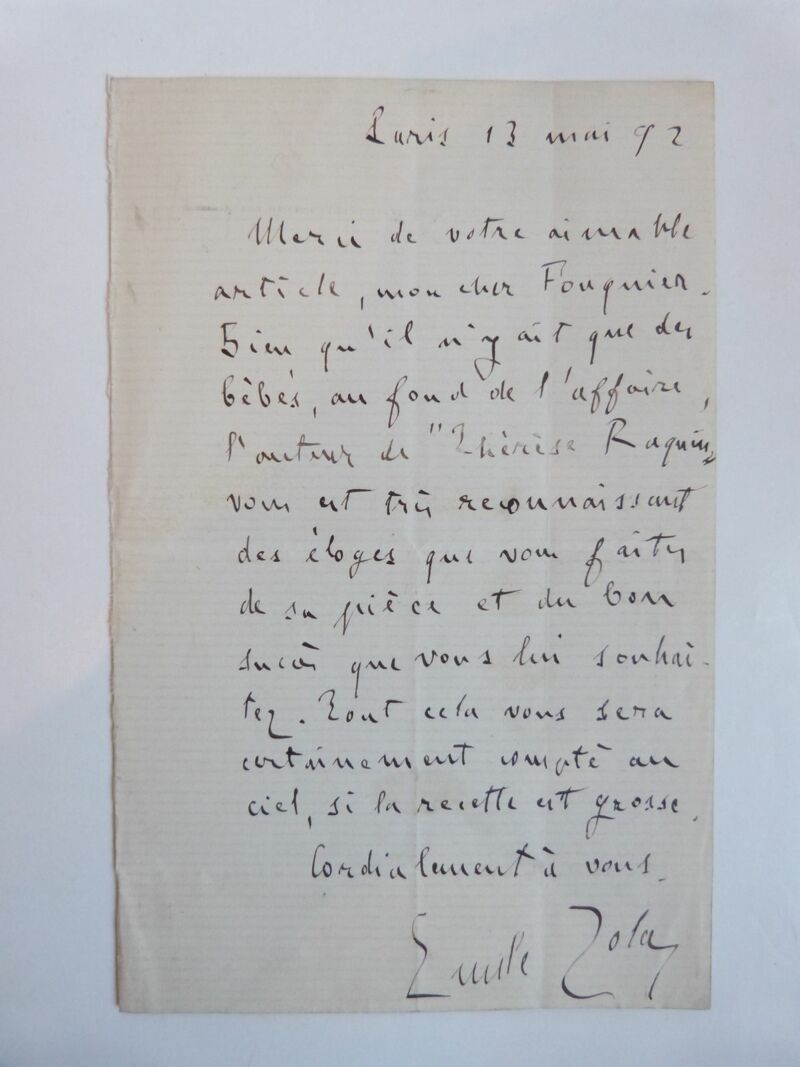 Paris 13 mai 92
Merci de votre aimable
article, mon cher Fouquier.
Bien qu'il n'y ait que des
bébés, au fond de l'affaire,
l'auteur de "Thérèse Raquin"
vous est très reconnaissant
des éloges que vous faites
de sa pièce et du bon
succès que vous lui souhai-
tez. Tout cela vous sera
certainement compté au
ciel, si la recette est grosse.
Cordialement à vous.
Emile Zola